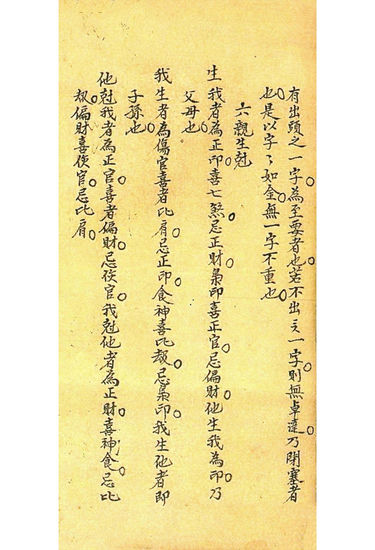 有出頭之一字為至要者也若不出之一字則無卓遠乃閉塞者
也是以字字如金無一字不重也
六親生尅
生我者為正印喜七煞忌正財梟印喜正官忌偏財他生我為印乃
父母也
我生者為傷官喜者比肩忌正印食神喜比刼忌梟印我生他者即
子孫也
他尅我者為正官喜者偏財忌使官我尅他者為正財喜神食忌比
刼偏財喜使官忌比肩